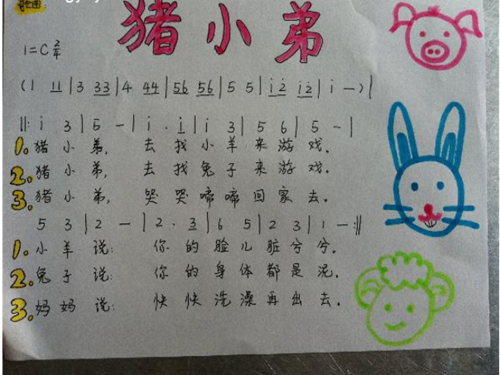 歌曲
猪小弟
1=C 2/4
(1 11|3 33|4 44|56 56|5 5|i2 i2|i —)|
||: i 3|5 —|i · i|i 3|5 6|5 —|
1. 猪小弟, 去找小羊来游戏.
2. 猪小弟, 去找兔子来游戏.
3. 猪小弟, 哭哭啼啼回家去.
5 3|2 —|2 · 3|6 5|2 3|1 — :||
1. 小羊说: 你的脸儿脏兮兮.
2. 兔子说: 你的身体都是泥.
3. 妈妈说: 快快洗澡再出去.